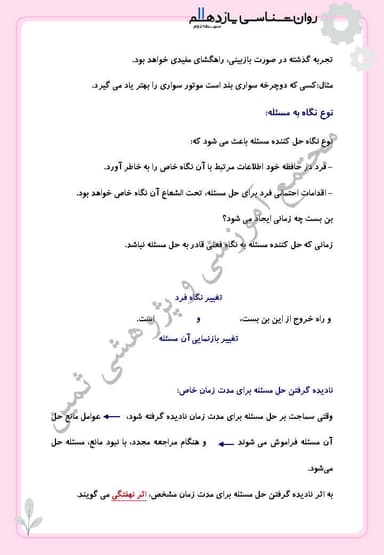 روان‌شناسی یازدهم
تجربه گذشته در صورت بازبینی، راهگشای مفیدی خواهد بود.
مثال:کسی که دوچرخه سواری بلد است موتور سواری را بهتر یاد می گیرد.
نوع نگاه به مسئله:
نوع نگاه حل کننده مسئله باعث می شود که:
– فرد در حافظه خود اطلاعات مرتبط با آن نگاه خاص را به خاطر آورد.
– اقدامات احتمالی فرد برای حل مسئله، تحت الشعاع آن نگاه خاص خواهد بود.
بن بست چه زمانی ایجاد می شود؟
زمانی که حل کننده مسئله به نگاه فعلی قادر به حل مسئله نباشد.
تغییر نگاه فرد
و راه خروج از این بن بست، و است.
تغییر بازنمایی آن مسئله
نادیده گرفتن حل مسئله برای مدت زمان خاص:
وقتی سماجت بر حل مسئله برای مدت زمان نادیده گرفته شود، ← عوامل مانع حل
آن مسئله فراموش می شوند ← و هنگام مراجعه مجدد، با نبود مانع، مسئله حل
می‌شود.
به اثر نادیده گرفتن حل مسئله برای مدت زمان مشخص، اثر نهفتگی می گویند.
مجتمع آموزشی و پژوهشی ثمین